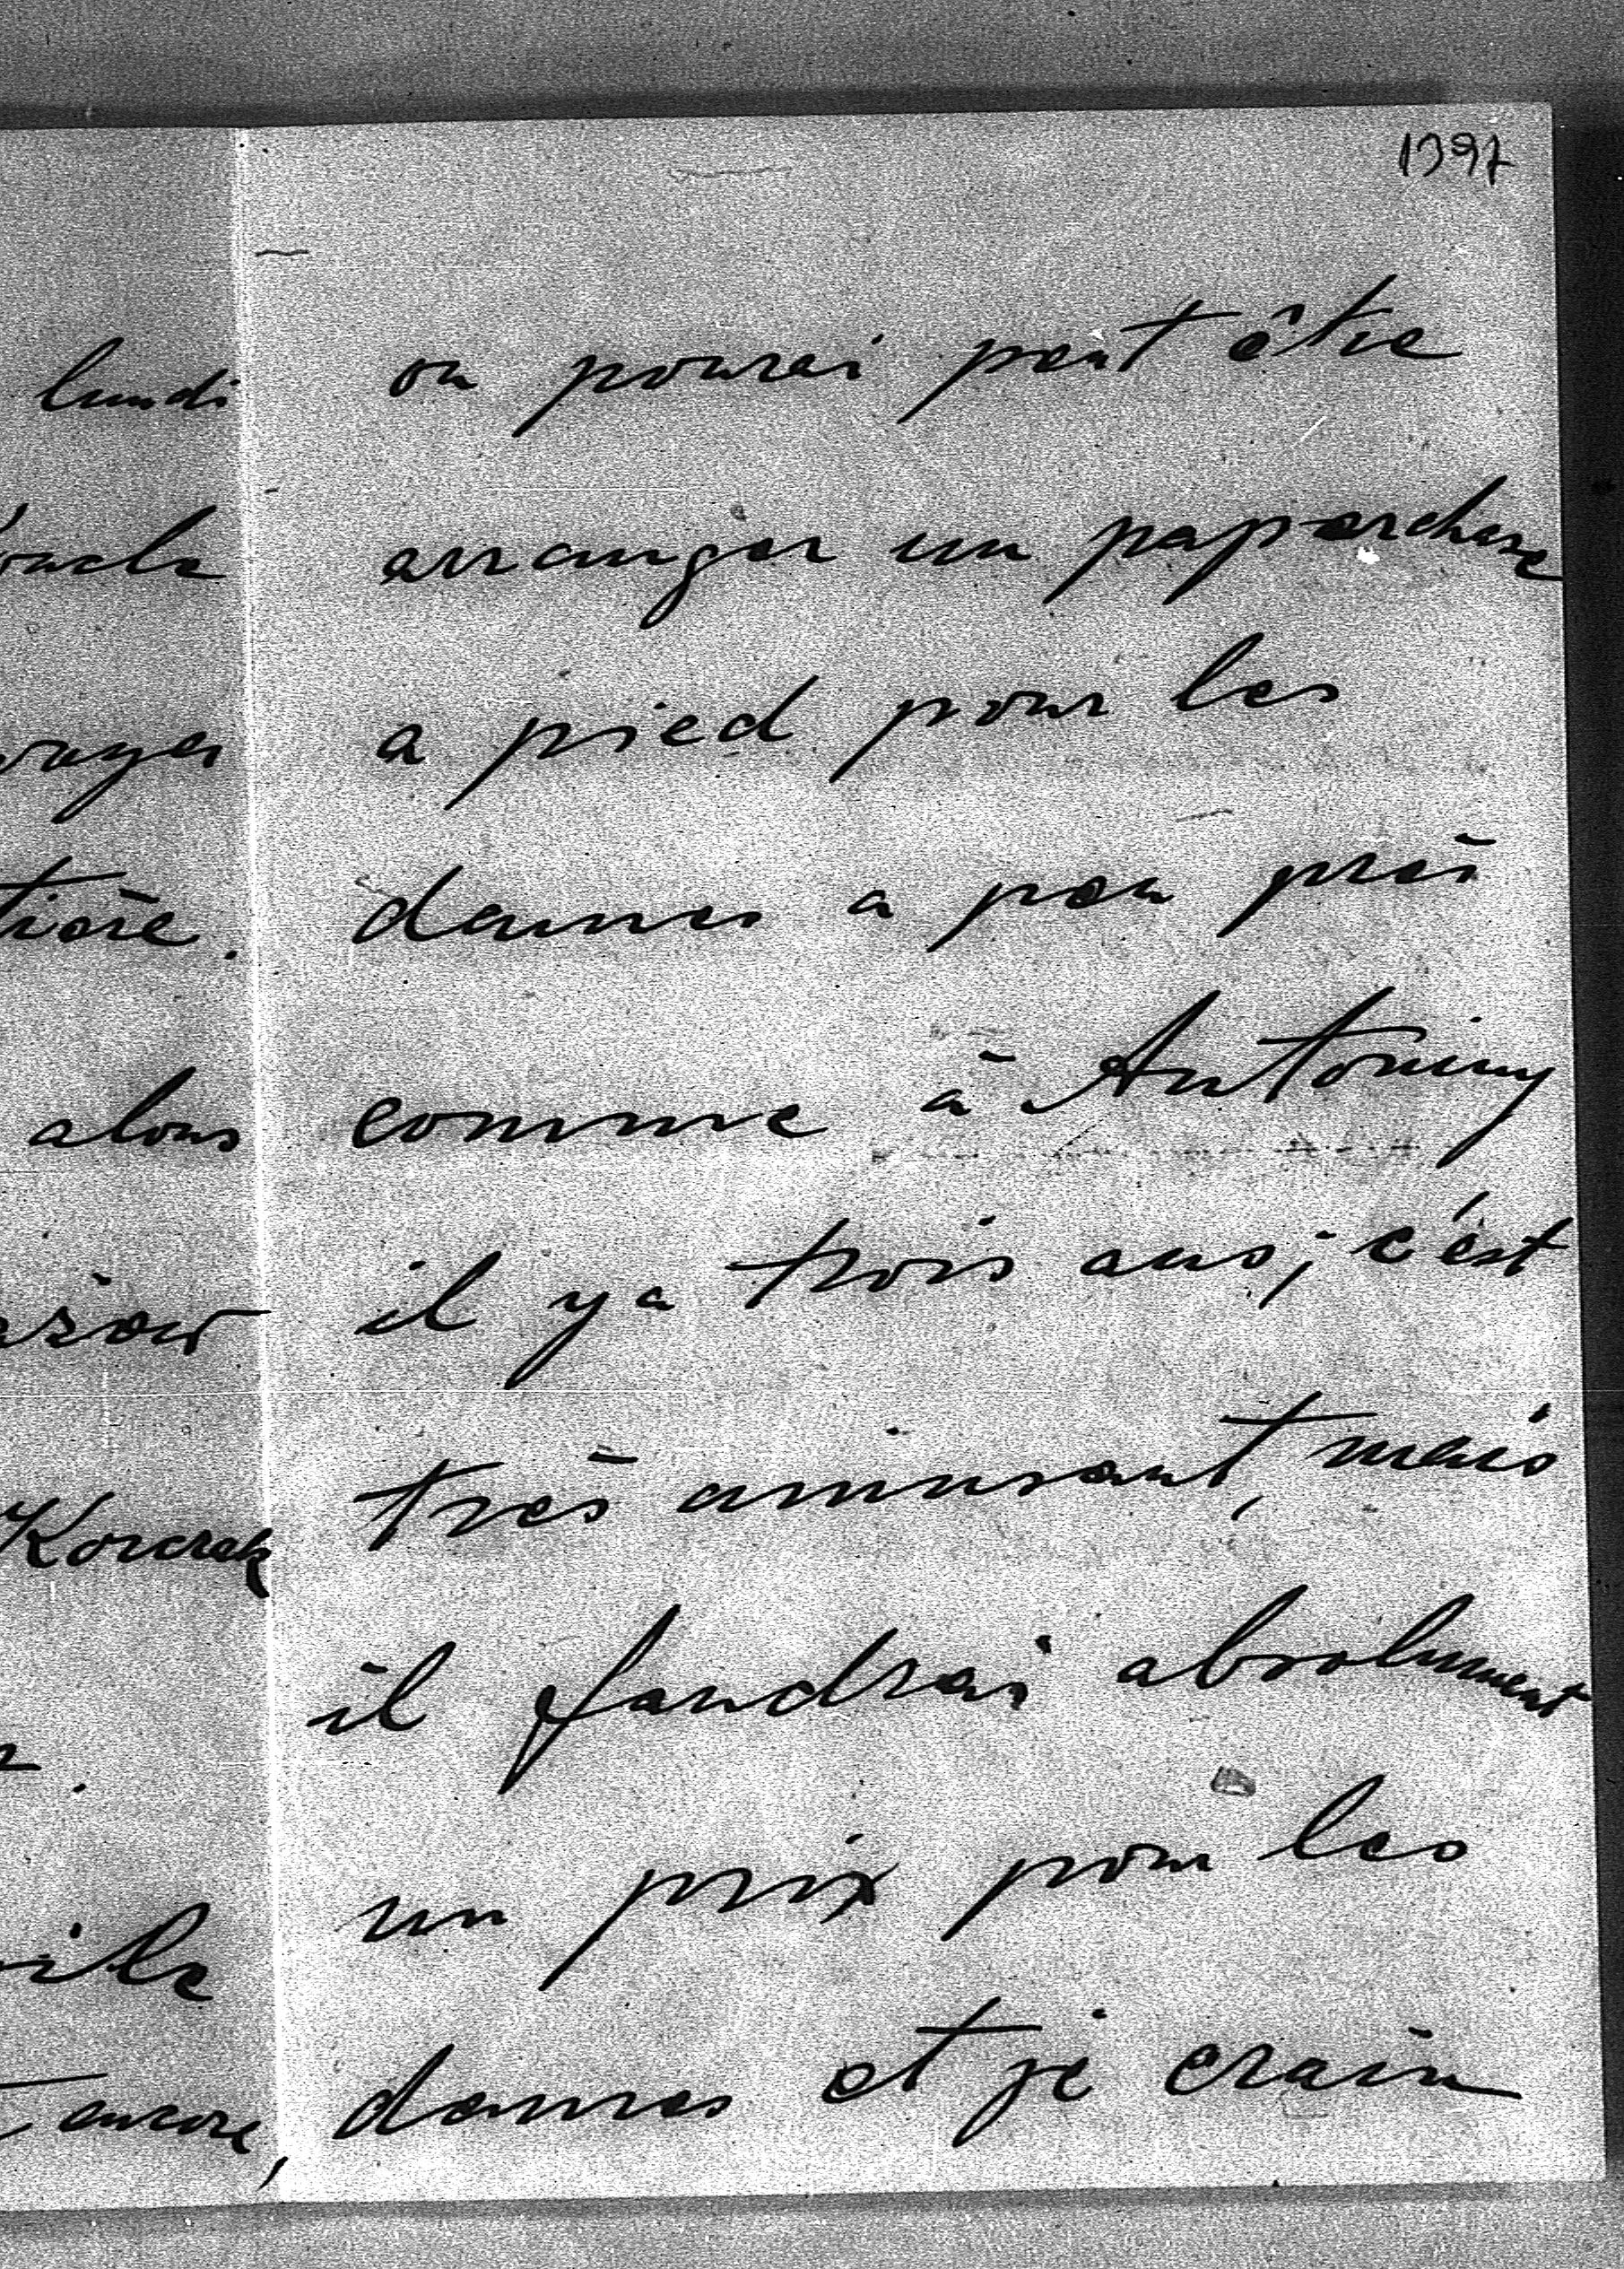 1397
on pourai peut être
arranger un paperchase
a pied pour les
dames a peu près
comme à Antoniny
il y a trois ans; c'ést
très amusant, mais
il faudrai absolument
un prix pour les
dames et je crain
lundi
alons
Korczak
encore,